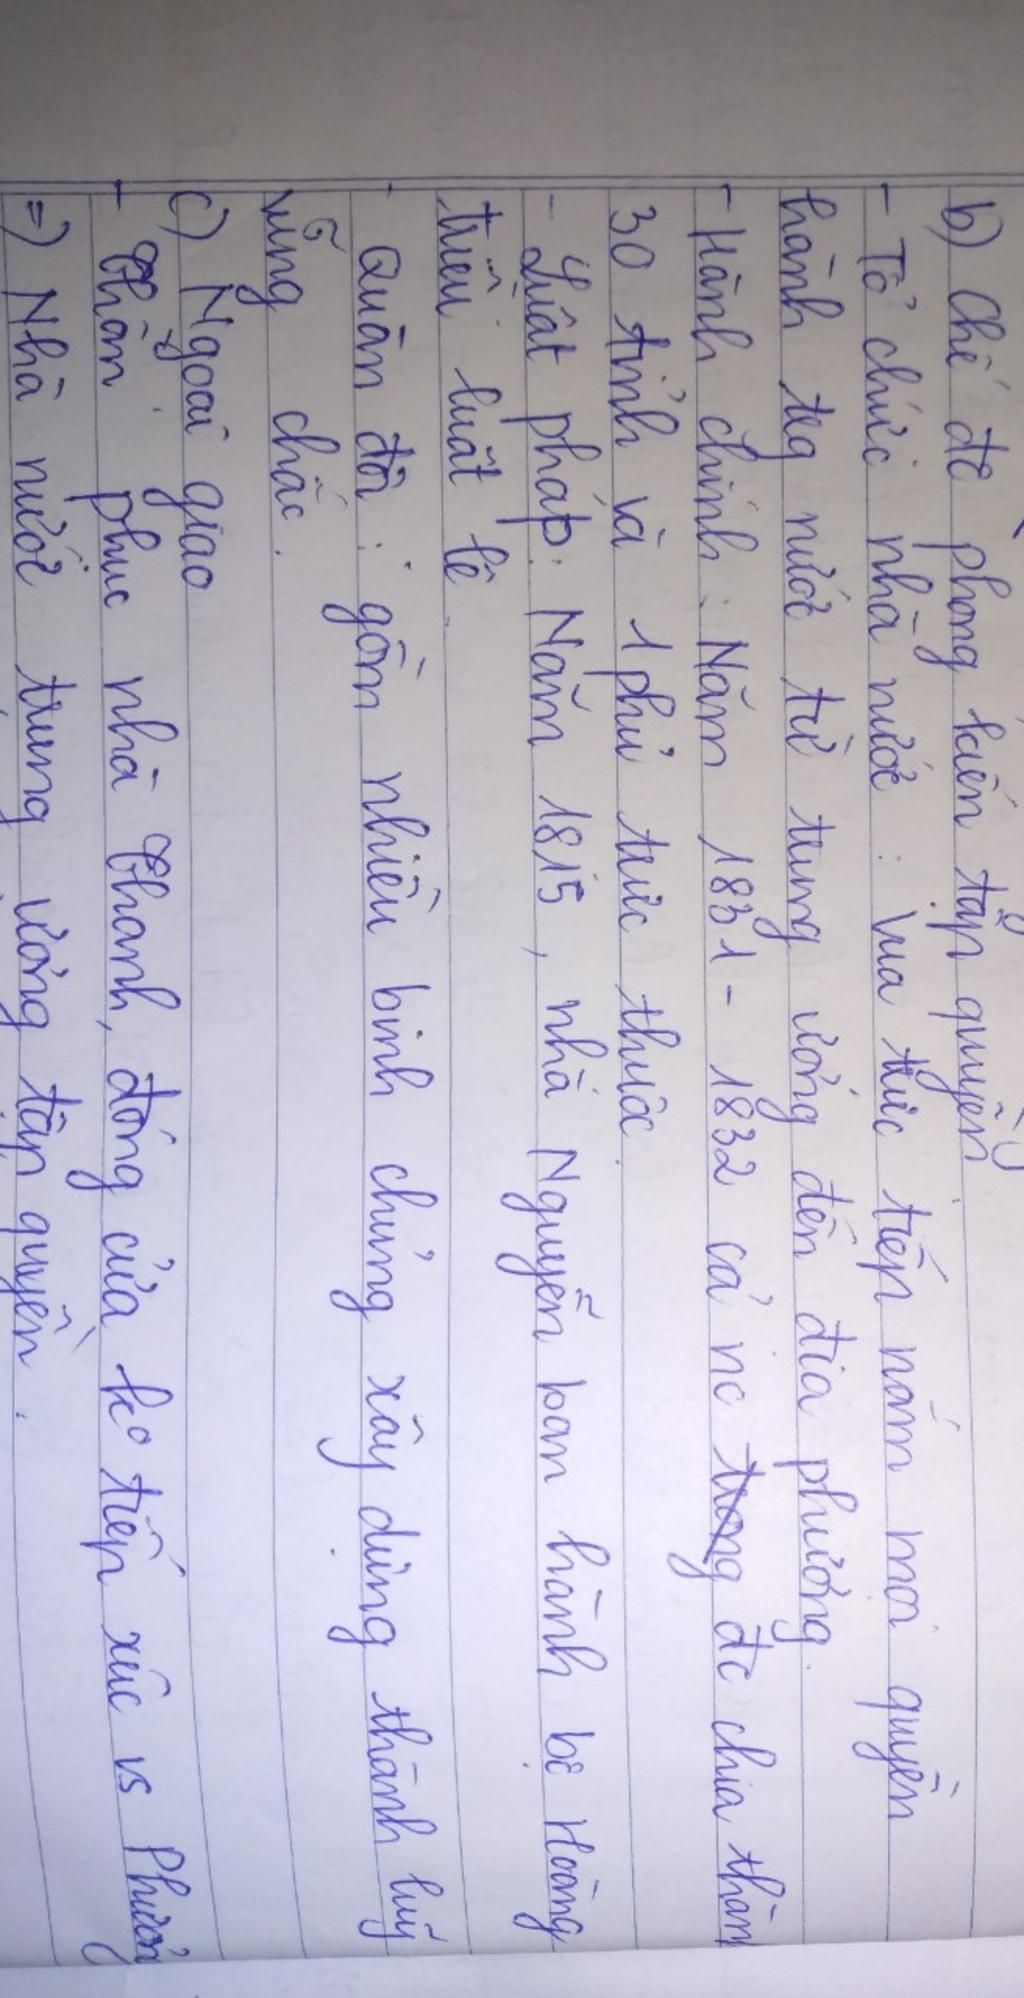 b) Chế độ phong kiến tập quyền
- Tổ chức nhà nước : Vua trực tiếp nắm mọi quyền
hành trg nước từ trung ương đến địa phương.
- Hành chính : Năm 1831 - 1832 cả nc trong đc chia thàn
30 tỉnh và 1 phủ trực thuộc.
- Luật pháp : Năm 1815, nhà Nguyễn ban hành bộ Hoàng
triều luật lệ.
- Quân đội : gồm nhiều binh chủng xây dựng thành luỹ
vững chắc.
c) Ngoại giao
- Thần phục nhà Thanh, đóng cửa ko tiếp xúc vs Phươn
=) Nhà nước trung ương tập quyền.